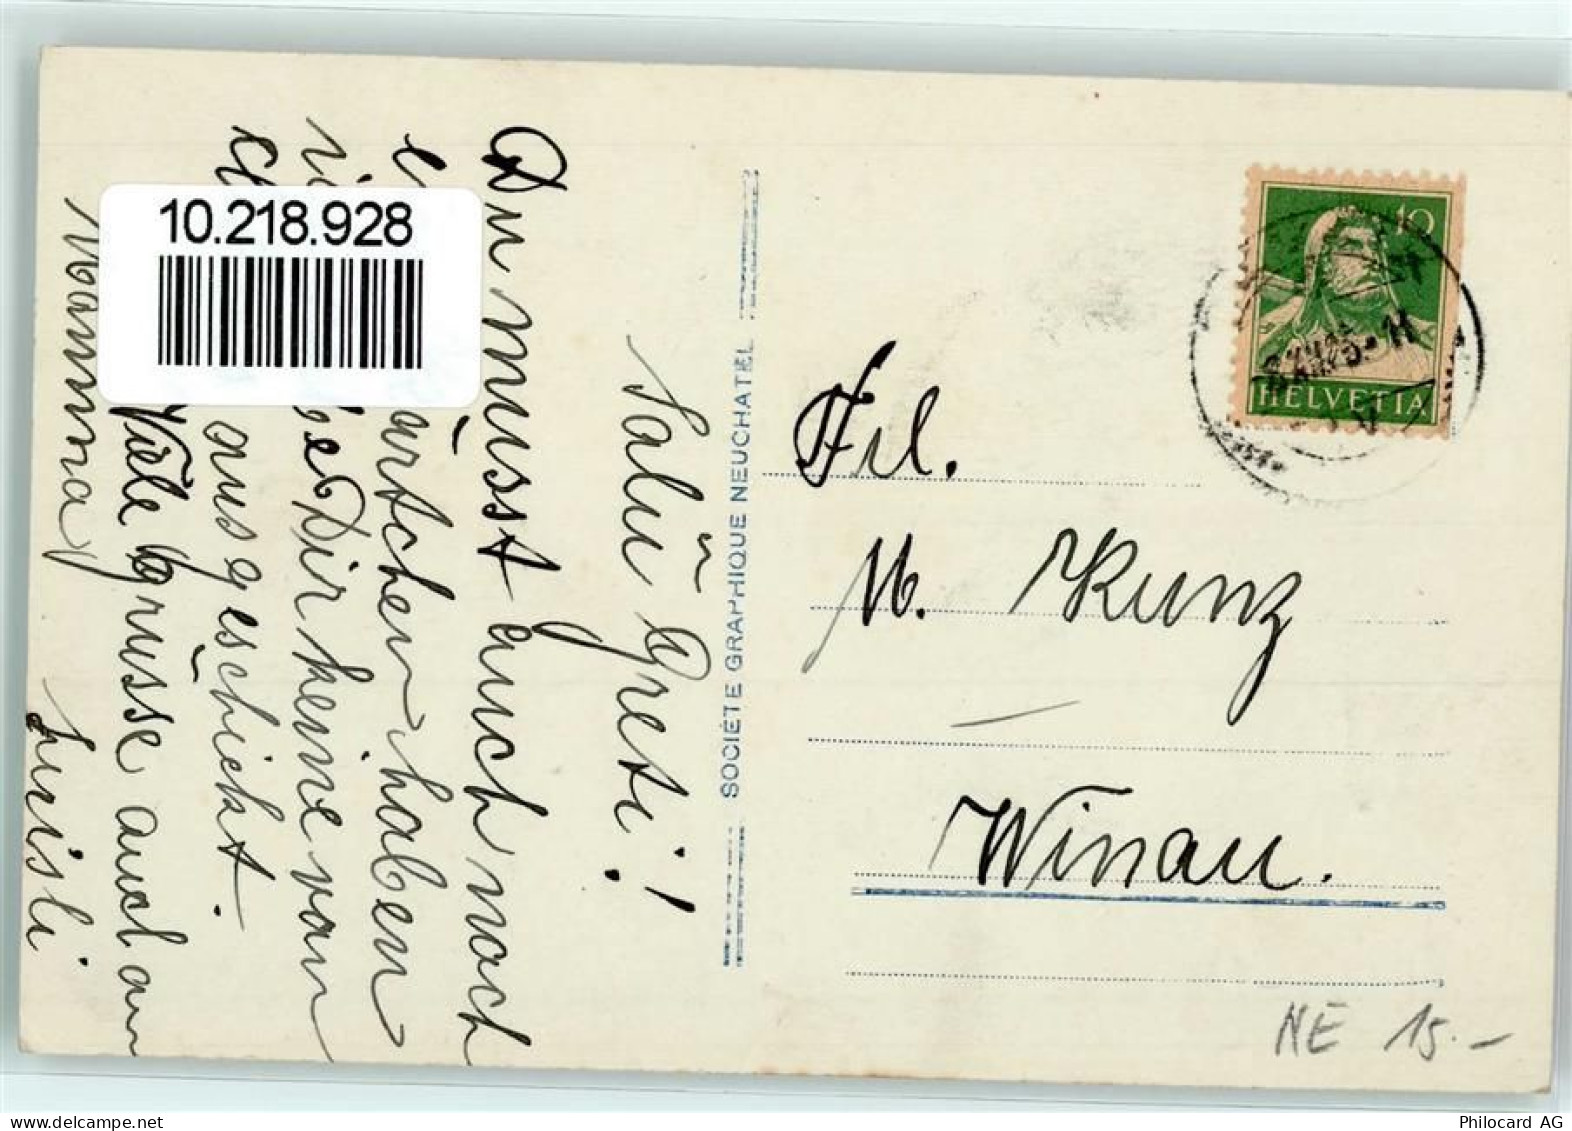 Salü Greti!
Du musst auch noch
ärtchen haben
be Dir keine von
ausgeschickt.
Viele Grüsse auch an
Mamma
Luisli
10.218.928
SOCIÉTÉ GRAPHIQUE NEUCHATEL
10
HELVETIA
Frl.
M. Kunz
Winau.
NE 15.-
Philocard AG